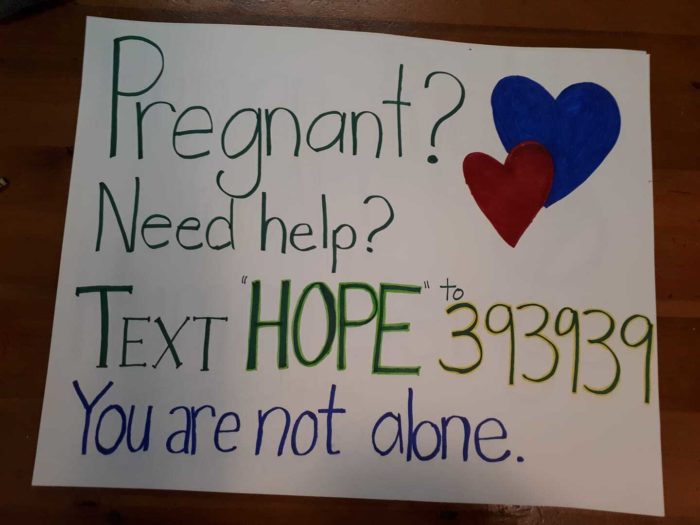 Pregnant?
Need help?
TEXT "HOPE" to 393939
You are not alone.